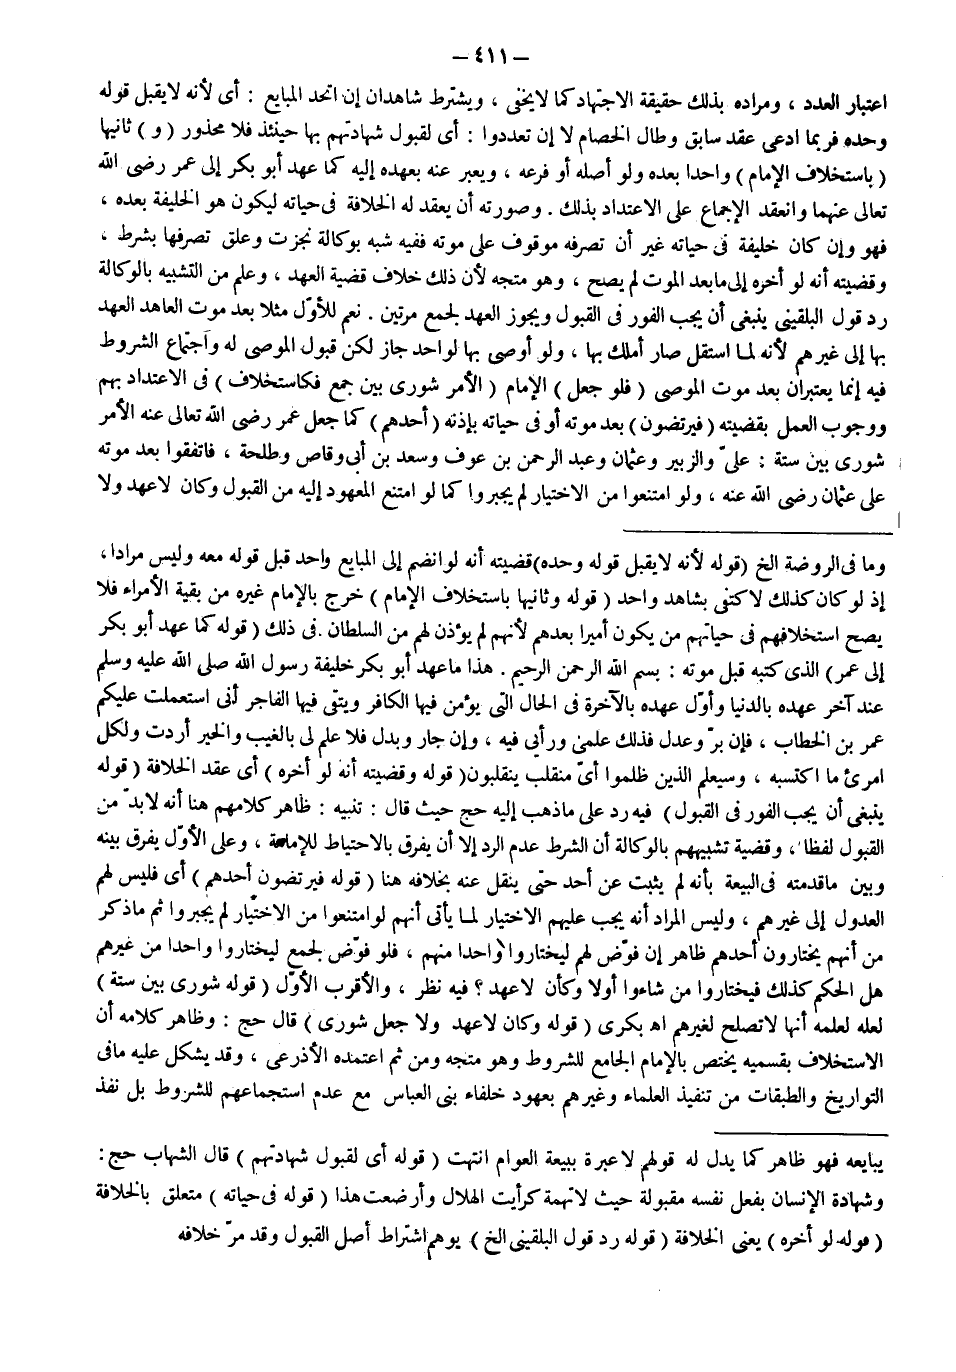 — ٤١١ —
اعتبار العدد ، ومراده بذلك حقيقة الاجتهاد كما لايخفى ، ويشترط شاهدان إن اتحد المبايع : أى لأنه لايقبل قوله
وحده فربما ادعى عقد سابق وطال الخصام لا إن تعددوا : أى لقبول شهادتهم بها حينئذ فلا محذور ( و ) ثانيها
( باستخلاف الإمام ) واحدا بعده ولو أصله أو فرعه ، ويعبر عنه بعهده إليه كما عهد أبو بكر إلى عمر رضى الله
تعالى عنهما وانعقد الإجماع على الاعتداد بذلك . وصورته أن يعقد له الخلافة فى حياته ليكون هو الخليفة بعده ،
فهو وإن كان خليفة فى حياته غير أن تصرفه موقوف على موته ففيه شبه بوكالة نجزت وعلق تصرفها بشرط ،
وقضيته أنه لو أخره إلى مابعد الموت لم يصح ، وهو متجه لأن ذلك خلاف قضية العهد ، وعلم من التشبيه بالوكالة
رد قول البلقينى ينبغى أن يجب الفور فى القبول ويجوز العهد لجمع مرتين . نعم للأوّل مثلا بعد موت العاهد العهد
بها إلى غيرهم لأنه لما استقل صار أملك بها ، ولو أوصى بها لواحد جاز لكن قبول الموصى له واجتماع الشروط
فيه إنما يعتبران بعد موت الموصى ( فلو جعل ) الإمام ( الأمر شورى بين جمع فكاستخلاف ) فى الاعتداد بهم
ووجوب العمل بقضيته ( فيرتضون ) بعد موته أو فى حياته بإذنه ( أحدهم ) كما جعل عمر رضى الله تعالى عنه الأمر
شورى بين ستة : علىّ والزبير وعثمان وعبد الرحمن بن عوف وسعد بن أبى وقاص وطلحة ، فاتفقوا بعد موته
على عثمان رضى الله عنه ، ولو امتنعوا من الاختيار لم يجبروا كما لو امتنع المعهود إليه من القبول وكان لاعهد ولا
وما فى الروضة الخ (قوله لأنه لايقبل قوله وحده) قضيته أنه لو انضم إلى المبايع واحد قبل قوله معه وليس مرادا ،
إذ لو كان كذلك لاكتفى بشاهد واحد ( قوله وثانيها باستخلاف الإمام ) خرج بالإمام غيره من بقية الأمراء فلا
يصح استخلافهم فى حياتهم من يكون أميرا بعدهم لأنهم لم يؤذن لهم من السلطان . فى ذلك ( قوله كما عهد أبو بكر
إلى عمر ) الذى كتبه قبل موته : بسم الله الرحمن الرحيم . هذا ماعهد أبو بكر خليفة رسول الله صلى الله عليه وسلم
عند آخر عهده بالدنيا وأوّل عهده بالآخرة فى الحال التى يؤمن فيها الكافر ويتقى فيها الفاجر أنى استعملت عليكم
عمر بن الخطاب ، فإن برّ وعدل فذلك علمى ورأيى فيه ، وإن جار وبدل فلا علم لى بالغيب والخير أردت ولكل
امرئ ما اكتسبه ، وسيعلم الذين ظلموا أىّ منقلب ينقلبون ( قوله وقضيته أنه لو أخره ) أى عقد الخلافة ( قوله
ينبغى أن يجب الفور فى القبول ) فيه رد على ماذهب إليه حج حيث قال : تنبيه : ظاهر كلامهم هنا أنه لابدّ من
القبول لفظا ، وقضية تشبيههم بالوكالة أن الشرط عدم الرد إلا أن يفرق بالاحتياط للإمامة ، وعلى الأوّل يفرق بينه
وبين ماقدمته فى البيعة بأنه لم يثبت عن أحد حتى ينقل عنه بخلافه هنا ( قوله فيرتضون أحدهم ) أى فليس لهم
العدول إلى غيرهم ، وليس المراد أنه يجب عليهم الاختيار لما يأتى أنهم لو امتنعوا من الاختيار لم يجبروا ثم ماذكر
من أنهم يختارون أحدهم ظاهر إن فوّض لهم ليختاروا واحدا منهم ، فلو فوّض لجمع ليختاروا واحدا من غيرهم
هل الحكم كذلك فيختاروا من شاءوا أولا وكأن لاعهد ؟ فيه نظر ، والأقرب الأوّل ( قوله شورى بين ستة )
لعله لعلمه أنها لاتصلح لغيرهم اه بكرى ( قوله وكان لاعهد ولا جعل شورى ) قال حج : وظاهر كلامه أن
الاستخلاف بقسميه يختص بالإمام الجامع للشروط وهو متجه ومن ثم اعتمده الأذرعى ، وقد يشكل عليه مافى
التواريخ والطبقات من تنفيذ العلماء وغيرهم بعهود خلفاء بنى العباس مع عدم استجماعهم للشروط بل نفذ
يبايعه فهو ظاهر كما يدل له قولهم لاعبرة ببيعة العوام انتهت ( قوله أى لقبول شهادتهم ) قال الشهاب حج :
وشهادة الإنسان بفعل نفسه مقبولة حيث لاتهمة كرأيت الهلال وأرضعت هذا ( قوله فى حياته ) متعلق بالخلافة
( قوله لو أخره ) يعنى الخلافة ( قوله رد قول البلقينى الخ ) يوهم اشتراط أصل القبول وقد مرّ خلافه